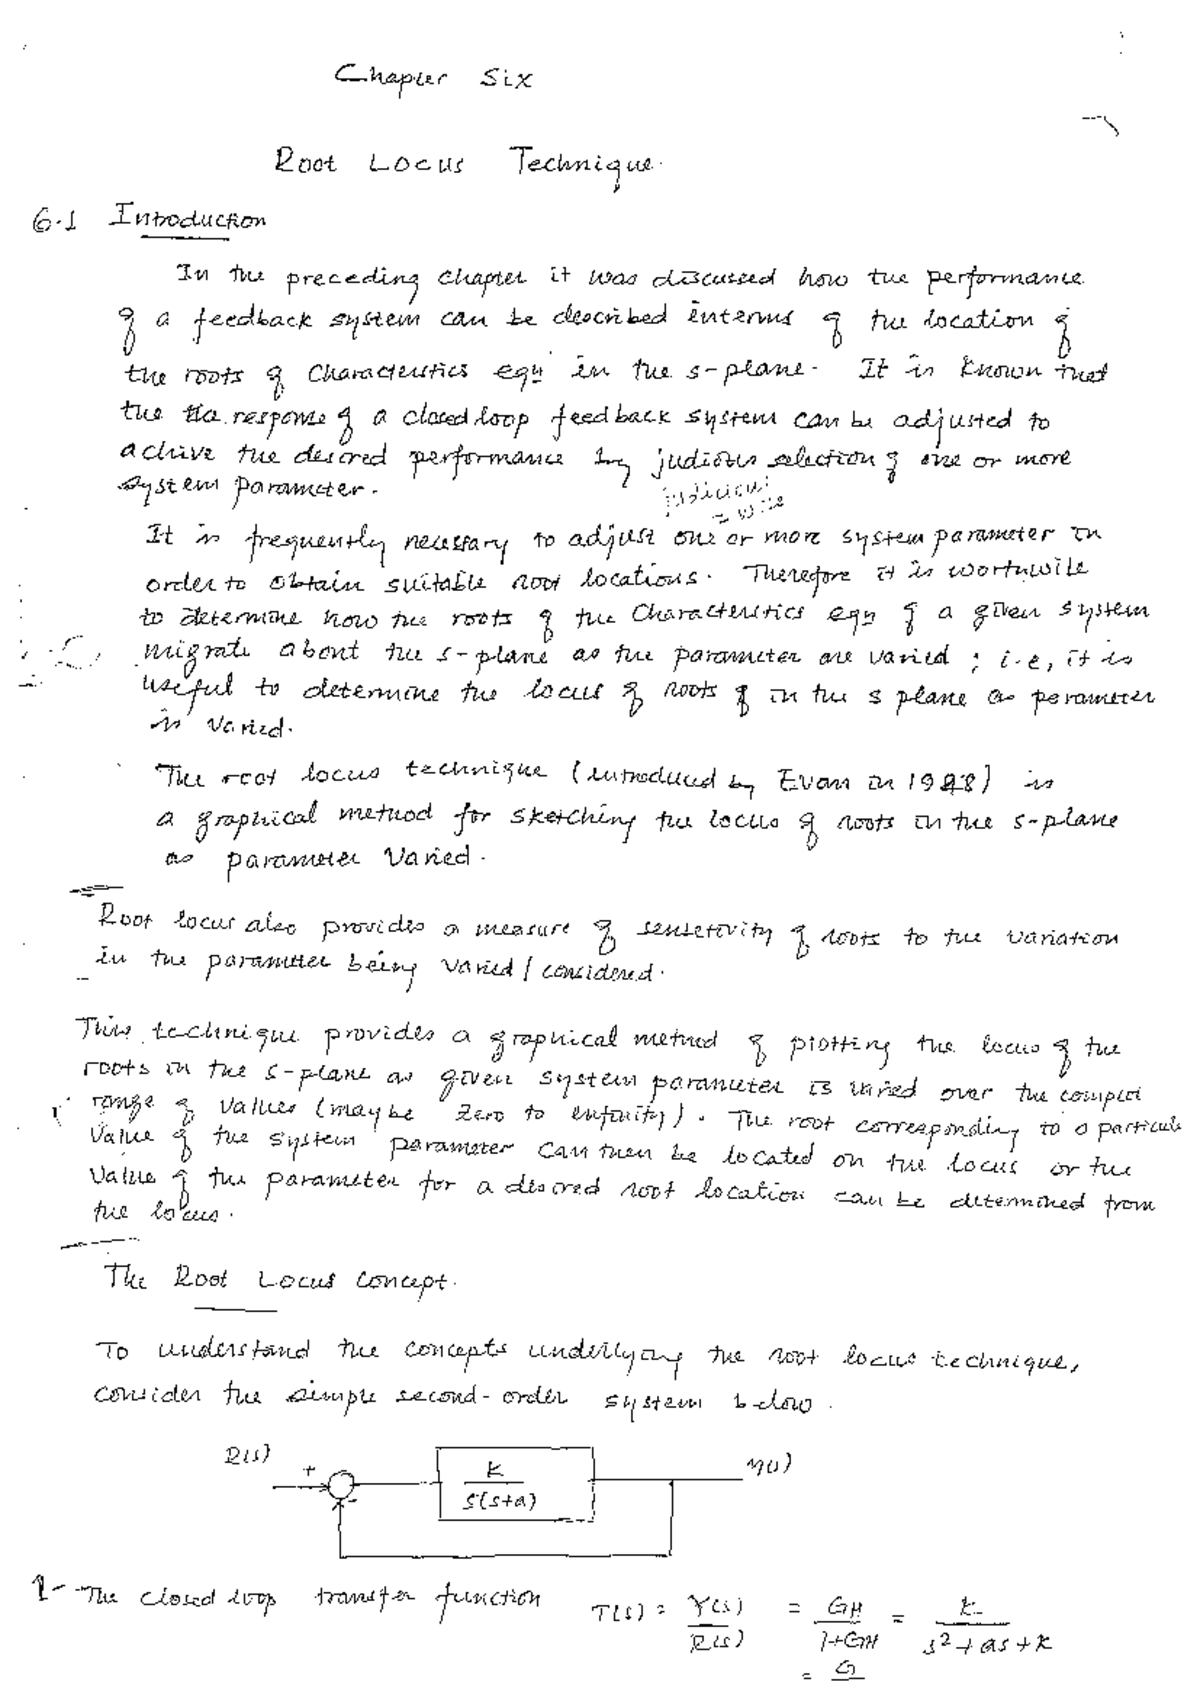 Chapter Six
Root Locus Technique.
6.1 Introduction
In the preceding chapter it was discussed how the performance
of a feedback system can be described interms of the location of
the roots of Characteristics eqn in the s-plane. It is known that
the response of a closed loop feedback system can be adjusted to
achive the desired performance by judious selection of one or more
system parameter.
judicious
= wise
It is frequently necessary to adjust one or more system parameter in
order to obtain suitable root locations. Therefore it is worthwile
to determine how the roots of the Characteristics eqn of a given system
migrate about the s-plane as the parameter are varied ; i.e, it is
useful to determine the locus of roots of in the s plane as perameter
is varied.
The root locus technique (introduced by Evan in 1948) is
a graphical method for sketching the locus of roots in the s-plane
as parameter Varied.
Root locus also provides a measure of sensetivity of roots to the variation
in the parameter being varied / considered.
This technique provides a graphical method of plotting the locus of the
roots in the s-plane as given system parameter is varied over the complet
range of values (may be zero to infinity). The root corresponding to a particula
Value of the system parameter can then be located on the locus or the
Value of the parameter for a desired root location can be determined from
the locus.
The Root Locus Concept.
To understand the concepts underlying the root locus technique,
consider the simple second-order system below.
R(s) + - K / s(s+a) Y(s)
1- The closed loop transfer function T(s) = Y(s)/R(s) = GH/1+GH = K/s²+as+K
= G